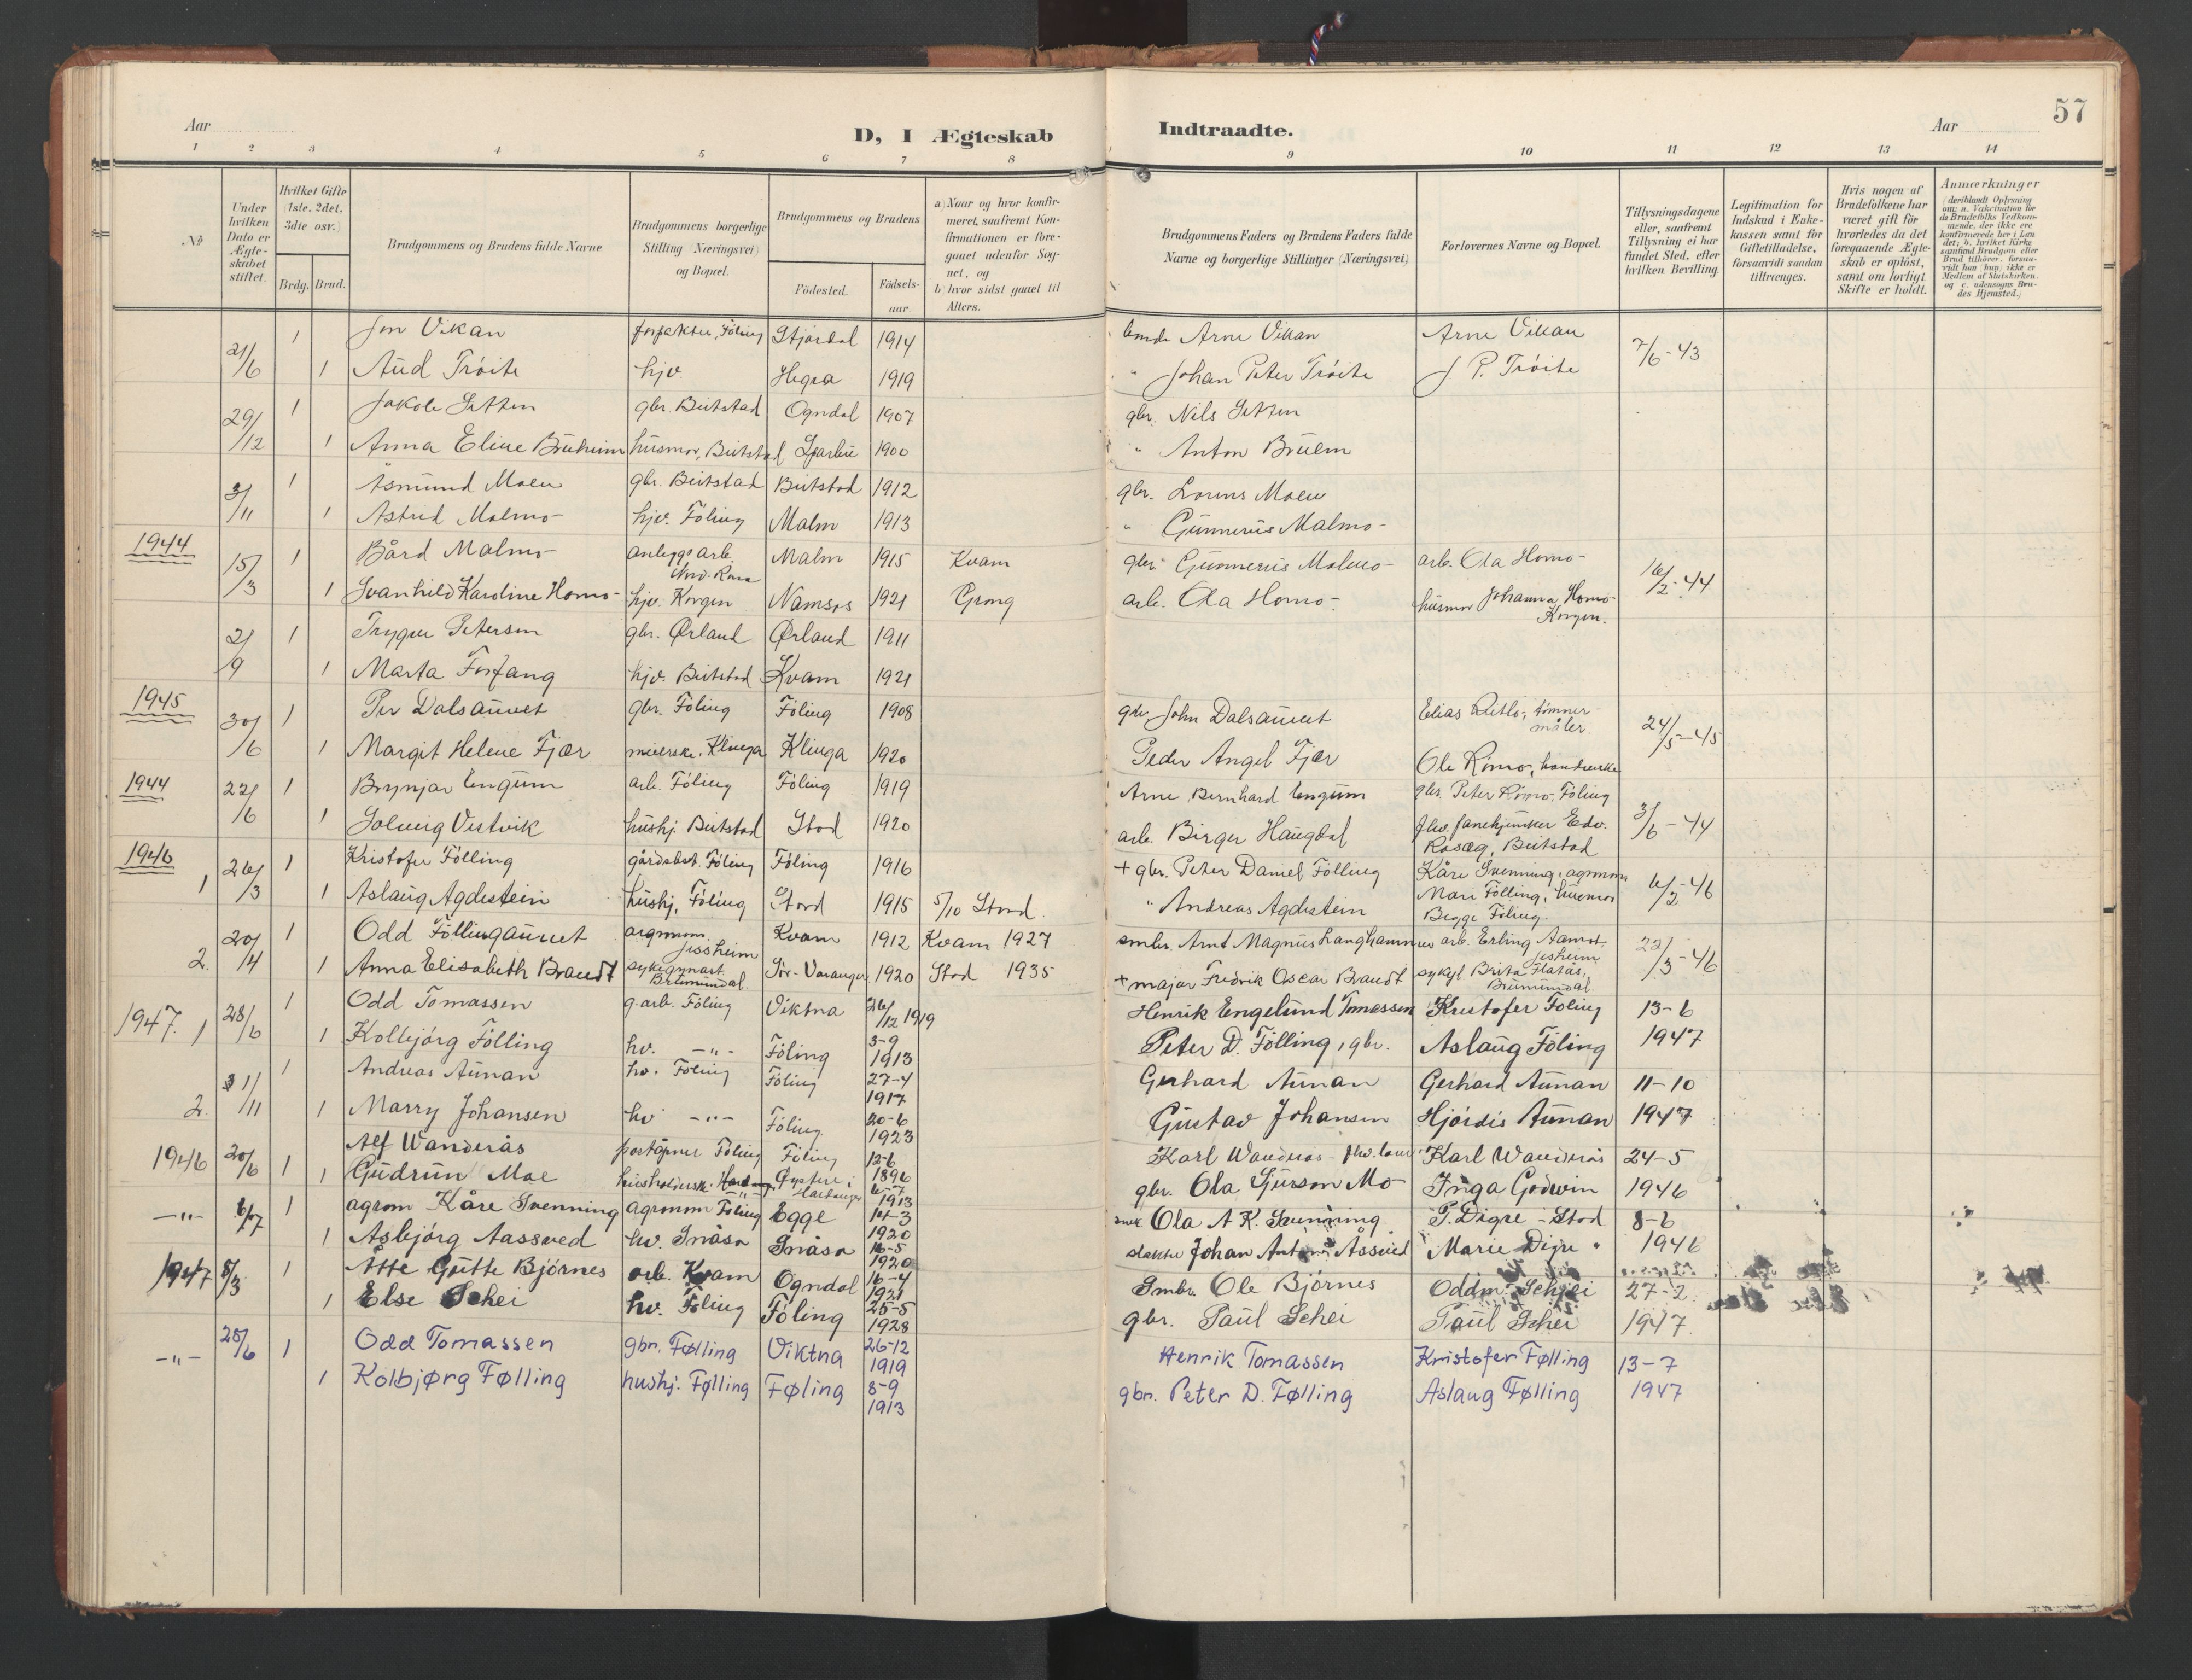 57
Aar
D, I Ægteskab
Indtraadte.
Aar
1 2 3 4 5 6 7 8 9 10 11 12 13 14
№
Under hvilken Dato er Ægteskabet stiftet.
Hvilket Gifte (1ste, 2det, 3die osv.)
Brdg. Brud.
Brudgommens og Brudens fulde Navne
Brudgommens borgerlige Stilling (Næringsvei) og Bopæl.
Brudgommens og Brudens
Fødested.
Fødselsaar.
a) Naar og hvor konfirmeret, saafremt Konfirmationen er foregaaet udenfor Sognet, og
b) hvor sidst gaaet til Alters.
Brudgommens Faders og Brudens Faders fulde Navne og borgerlige Stillinger (Næringsvei)
Forlovernes Navne og Bopæl.
Tillysningsdagene eller, saafremt Tillysning ei har fundet Sted, efter hvilken Bevilling.
Legitimation for Indskud i Enkekassen samt for Giftetilladelse, forsaavidt saadan tiltrænges.
Hvis nogen af Brudefolkene har været gift før hvorledes da det foregaaende Ægteskab er opløst, samt om lovligt Skifte er holdt.
Anmærkninger (deriblandt Oplysning om: a. Vakcination for de Brudefolks Vedkommende, der ikke ere konfirmerede her i Landet; b. hvilket Kirkesamfund Brudgom eller Brud tilhører, forsaavidt han (hun) ikke er Medlem af Statskirken. og c. udensogns Brudes Hjemsted.)
21/6 1 Jon Vikan forpakter, Föling Stjørdal 1914 Arne Vikan Arne Vikan 7/6-43
1 Aud Tröite hjv. Hegra 1919 " Johan Peter Tröite J. P. Tröite
29/12 1 Jakob Setten gbr. Beitstad Ogndal 1907 gbr. Nils Setten
1 Anna Eline Bruheim husmor, Beitstad Sparbu 1900 " Anton Bruem
3/11 1 Åsmund Moen gbr. Beitstad Beitstad 1912 gbr. Lorens Moen
1 Astrid Malmo hjv. Föling Malm 1913 " Gunnerius Malmo
1944 15/3 1 Bård Malmo anleggsarb. Nord-Rana Malm 1915 Kvam gbr. Gunnerius Malmo arb. Ola Homo 16/2-44
1 Svanhild Karoline Homo hjv. Korgen Namsos 1921 Grong arb. Ola Homo husmor Johanna Homo Korgen.
2/9 1 Trygve Petersen gbr. Ørland Ørland 1911
1 Marta Forfang hjv. Beitstad Kvam 1921
1945 30/6 1 Per Dalsaunet gbr. Föling Föling 1908 gbr John Dalsaunet Elias tømmermåler. 24/5-45
1 Margit Helene Fjær meierske, Klinga Klinga 1920 Peder Angel Fjær Ole Römo,
1944 22/6 1 Brynjar Engum arb. Föling Föling 1919 Arne Bernhard Engum gbr. Peter Römo, Föling 3/6-44
1 Solveig Vestvik hushj. Beitstad Stod 1920 arb. Birger Haugdal fhv. fanejunker Edv. Rosæg, Beitstad
1946 1 26/3 1 Kristofer Fölling gårdsbest. Föling Föling 1916 + gbr. Peter Daniel Fölling Kåre Svenning, agronom 6/2-46
1 Aslaug Agdestein hushj. Föling Stord 1915 5/10 Stord. " Andreas Agdestein Mari Fölling, husmor Begge Föling.
2. 20/4 1 Odd Föllingaunet agronom. Jessheim Kvam 1912 Kvam 1927 smbr. Arnt Magnus Langhammer arb. Erling Aamot, Jesheim 22/3-46
1 Anna Elisabeth Brandt sykegymnast. Brumunddal Sör-Varanger 1920 Stod 1935 + major Fredrik Oscar Brandt sykpl. Brita Flatås, Brumunddal.
1947. 1 28/6 1 Odd Tomassen g.arb. Föling Viktna 26/12 1919 Henrik Engelund Tomassen Kristofer Föling 13-6
1 Kolbjörg Fölling hv. -"- Föling 3-9 1913 Peter D. Fölling, gbr. Aslaug Föling 1947
2. 1/11 1 Andreas Aunan hv. Föling Föling 27-4 1917 Gerhard Aunan Gerhard Aunan 11-10
1 Marry Johansen hv -"- Föling 20-6 1923 Gustav Johansen Hjördis Aunan 1947
1946 20/6 1 Alf Wanderås poståpner Föling Föling 12-6 1896 Karl Wanderås Karl Wanderås 24-5
1 Gudrun Moe husholdersk. Øystese i Hardanger 6-7 1913 gbr. Ola Sjurson Mo Inga Godwin 1946
-"- 6/7 1 agrom Kåre Svenning agronom Föling Egge 14-3 1920 Ola A K. Svenning P. Digre - Stod 8-6
1 Asbjörg Aassved hv. Snåsa Snåsa 16-5 1920 Johan Anton Åssved Marie Digre " 1946
1947 8/3 1 Atte Gutte Björnes arb. Kvam Ogndal 16-4 1921 Smbr. Ole Björnes Oddm. Schei 27-2
1 Else Schei hv. Föling Föling 25-5 1928 gbr. Paul Schei Paul Schei 1947.
-"- 28/6 1 Odd Tomassen gbr. Følling Viktna 26-12 1919 Henrik Tomassen Kristofer Følling 13-7
1 Kolbjørg Følling hushj. Følling Føling 8-9 1913 gbr. Peter D. Følling Aslaug Følling 1947